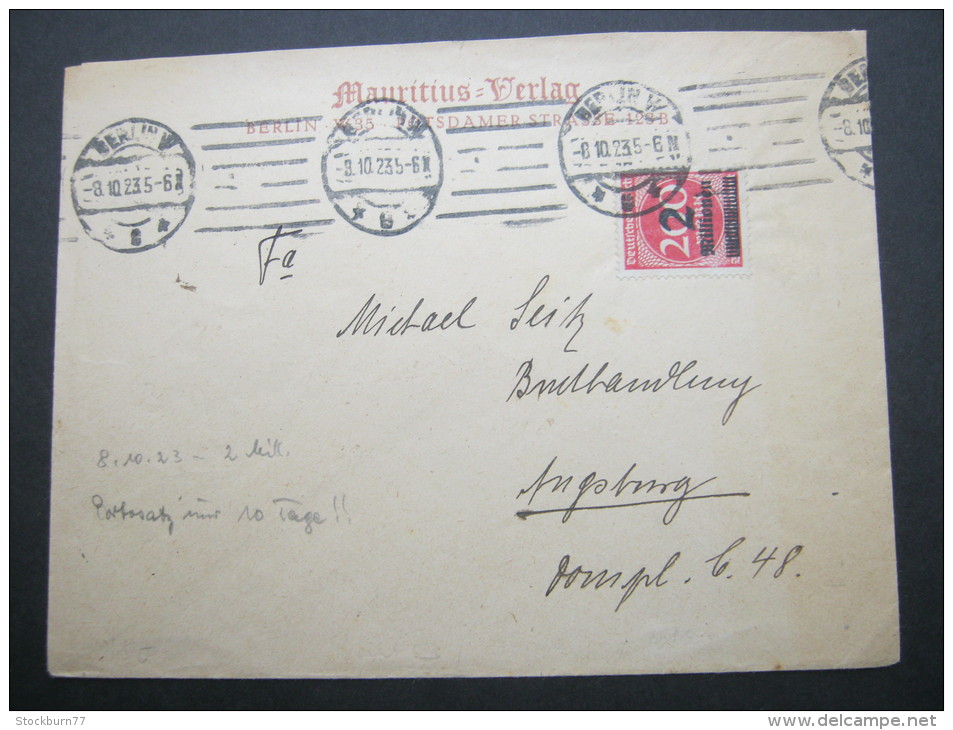 Mauritius-Verlag
BERLIN W35 POTSDAMER STRASSE 123B
BERLIN W
-8.10.23 5-6 N
BERLIN W
-8.10.23 5-6 N
BERLIN W
-8.10.23 5-6 N
BERLIN
-8.10
Deutsches
200
2
Millionen
Fa
Michael Seitz
Buchhandlung
Augsburg
Dompl. C. 48.
8.10.23 – 2 Mill.
Portosatz nur 10 Tage!!
Stockburn77
www.delcampe.net